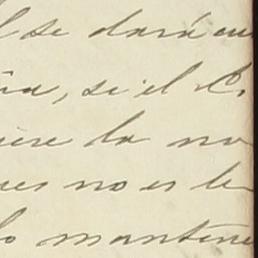 l se dará cu
ña, si el C.
iere la no
ues no es le
lo mantene